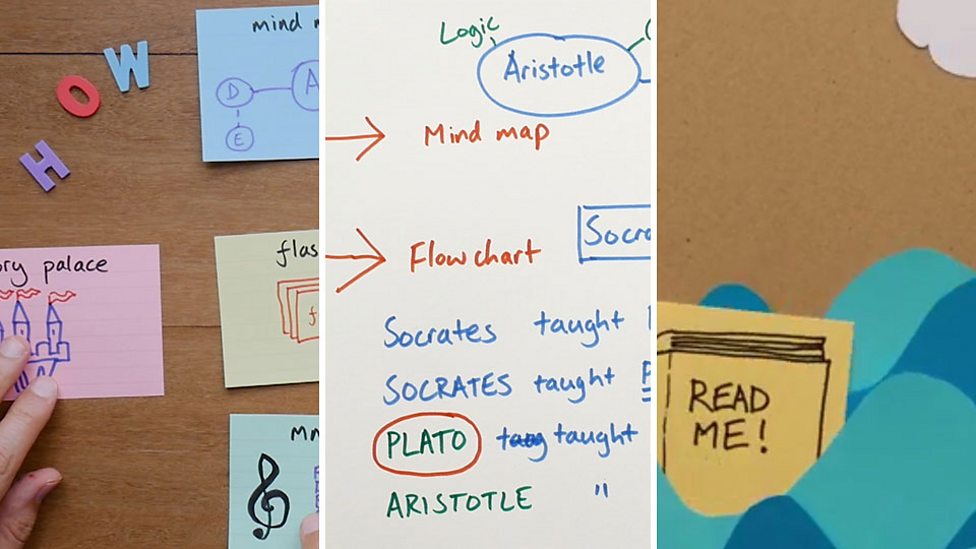 HOW
mind m
D A
E
ory palace
flas
f
mn
Logic
Aristotle
Mind map
Flow chart
Socra
Socrates taught
SOCRATES taught P
PLATO taught
ARISTOTLE "
READ
ME!